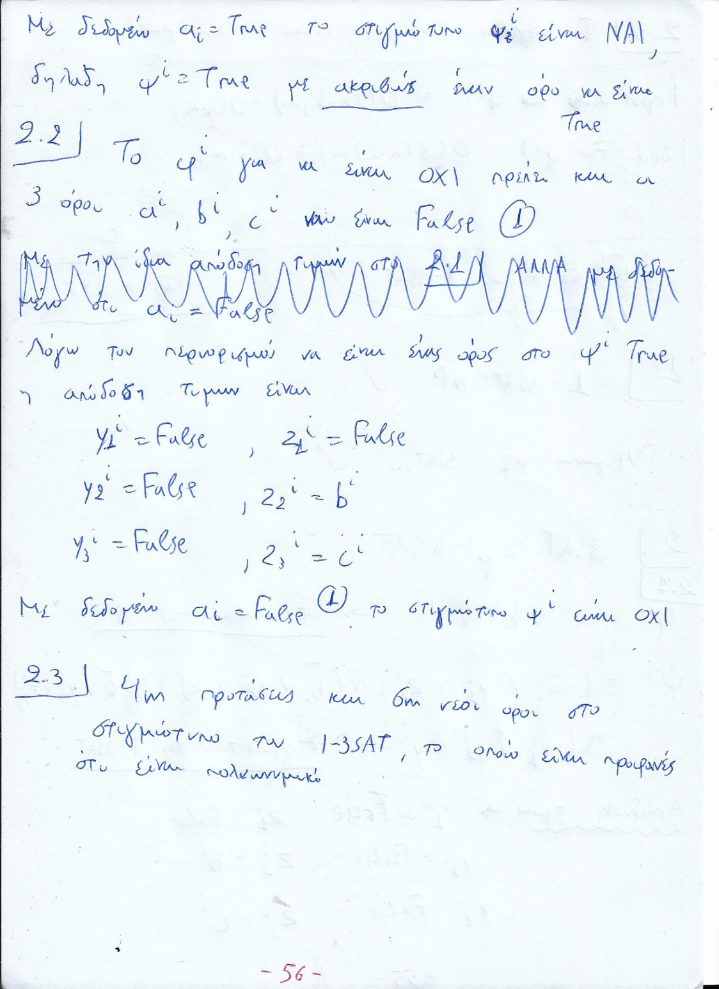 Με δεδομένο αi = True το στιγμιότυπο ψ^i είναι ΝΑΙ,
δηλαδή ψ^i = True με ακριβώς έναν όρο να είναι
True
2.2 Το φ^i για να είναι ΟΧΙ πρέπει και οι
3 όροι a^i, b^i, c^i να είναι False ①
Με την ίδια απόδοση τιμών στο 2.1 ΑΛΛΑ με δεδο-
μένο ότι αi = False
Λόγω του περιορισμού να είναι ένας όρος στο ψ^i True
η απόδοση τιμων είναι
y1^i = False , z1^i = False
y2^i = False , z2^i = b^i
y3^i = False , z3^i = c^i
Με δεδομένο αi = False ① το στιγμιότυπο ψ^i είναι ΟΧΙ
2.3 4m προτάσεις και 6m νέοι όροι στο
στιγμιότυπο του 1-3SAT, το οποίο είναι προφανές
ότι είναι πολυωνυμικό
-56-